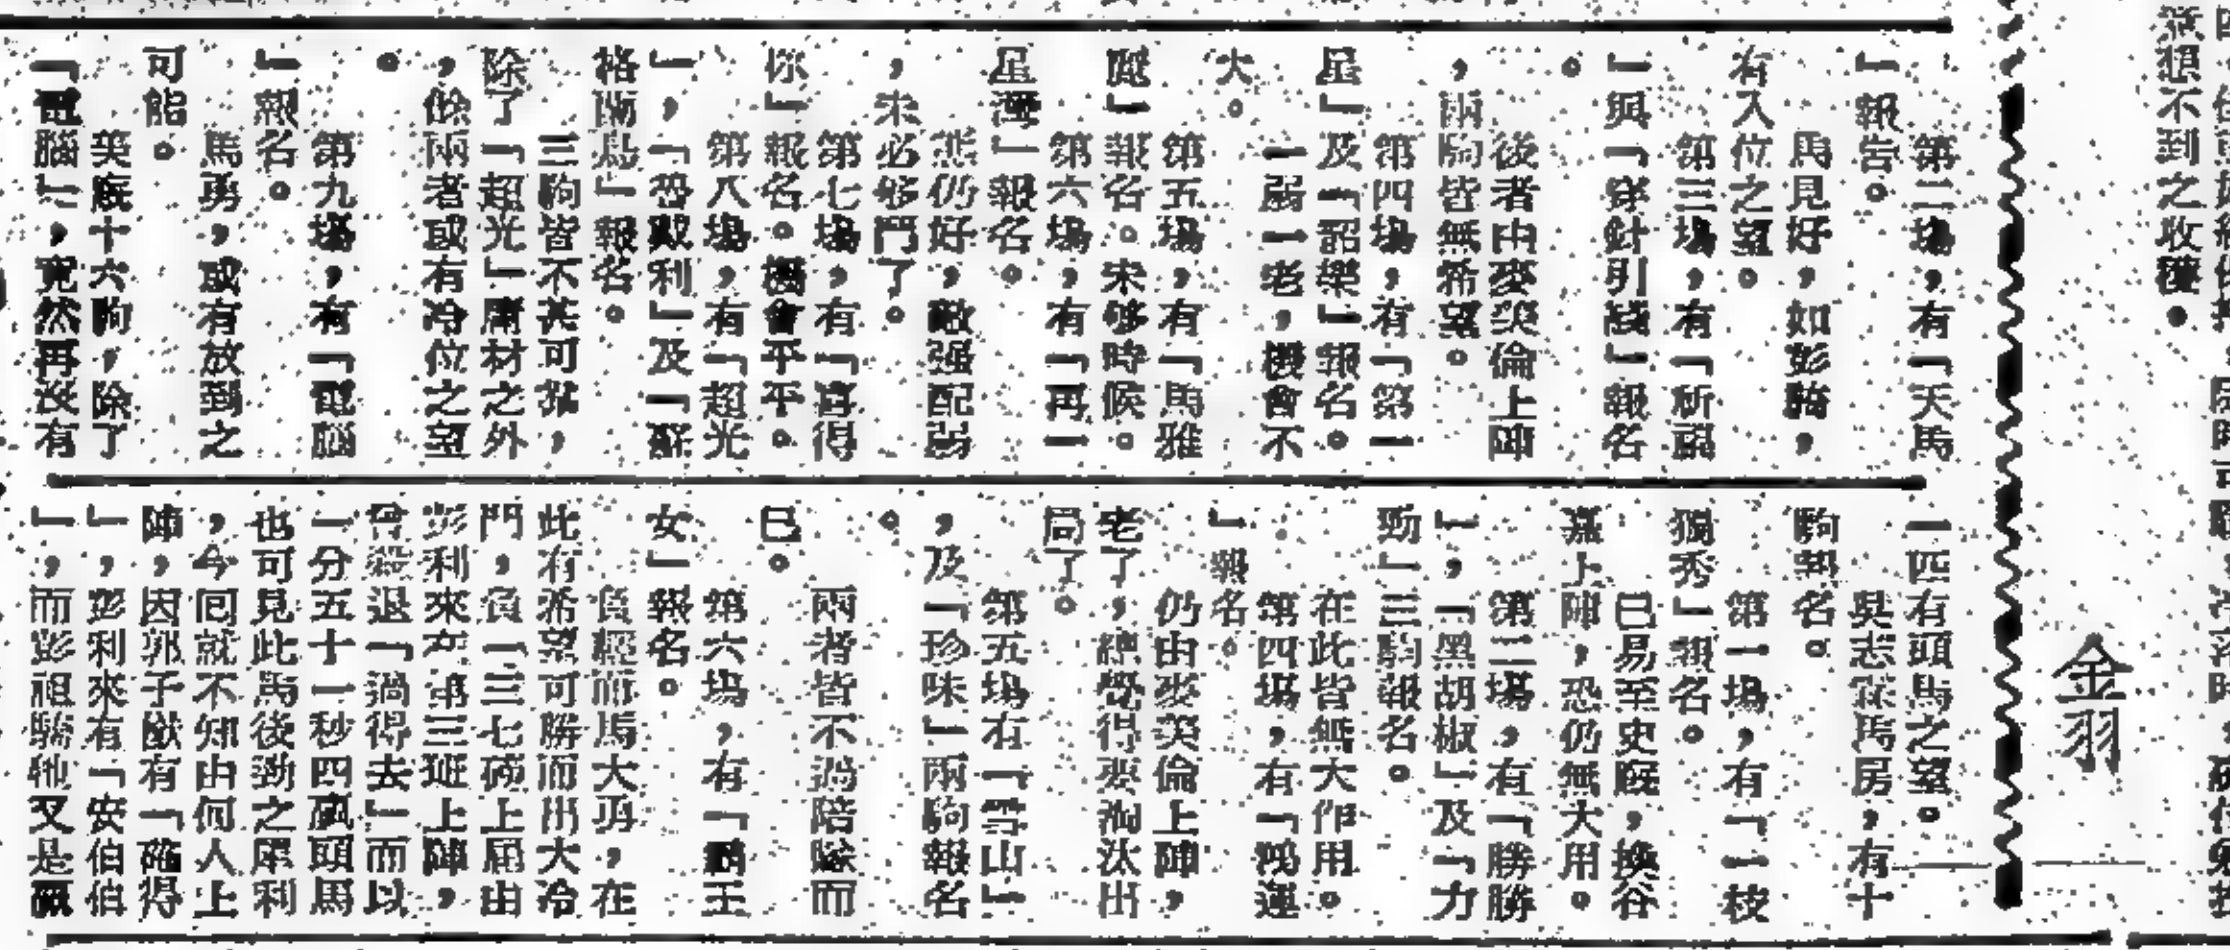 意想不到之收穫。
金羽
第二場，有「天馬
」報告。
馬見好，如彭騎，
有入位之望。
第三場，有「祈福
」與「穿針引綫」報名
。
後者由麥癸倫上陣
，兩駒皆無希望。
第四場，有「第一
星」及「韶樂」報名。
一弱一老，機會不
大。
第五場，有「馬雅
」報名。未够時候。
第六場，有「再一
星灣」報名。
仍好，敵强配弱
，未必够鬥了。
第七場，有「喜得
你」報名。機會平平。
第八場，有「超光
」，「恐戰利」及「蘇
格蘭島」報名。
三駒皆不甚可靠，
除了「超光」庸材之外
，餘兩者或有冷位之望
。
第九場，有「電腦
」報名。
馬勇，或有放到之
可能。
吳廐十六駒，除了
「電腦」，竟然再沒有
一匹有頭馬之望。
吳志霖馬房，有十
駒報名。
第一場，有「一枝
獨秀」報名。
已易至史廐，換谷
嘉上陣，恐仍無大用。
第三場，有「勝勝
」，「黑胡椒」及「力
勁」三駒報名。
在此皆無大作用。
第四場，有「鴻運
」報名。
仍由麥癸倫上陣，
老了，總覺得要淘汰出
局了。
第五場有「雪山」
，及「珍味」兩駒報名
。
兩者皆不過陪隊而
已。
第六場，有「鵬王
女」報名。
負輕而馬大勇，在
此有希望可勝而出大冷
門，負一三七磅上屆由
彭利來在第三班上陣，
曾殺退「過得去」而以
一分五十一秒四贏頭馬
也可見此馬後勁之犀利
，今回就不知由何人上
陣，因郭子猷有「確得
」，彭利來有「安伯伯
」，而彭祖騎牠又是贏